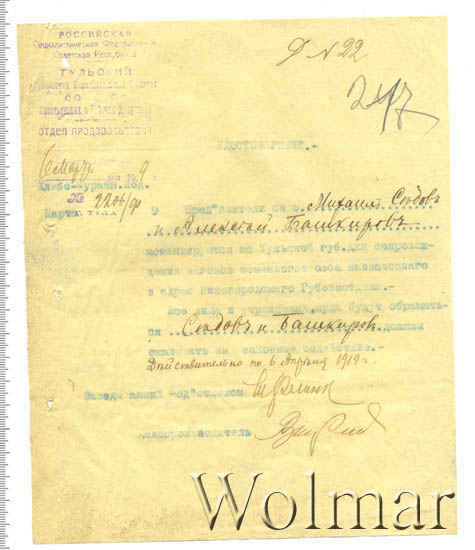 РОССИЙСКАЯ
Социалистическая Федеративная
Советская Респ.
ТУЛЬСКИЙ
ОТДЕЛ ПРОДОВОЛЬСТВИЯ
№ 22
247
УДОСТОВЕРЕНИЕ.-
6 Марта дня 1919
Под.
№ 2206/
Марта 9
Пред"явители сего Михаил Сюдовъ
и Алексей Башкировъ
командируется по Тульской губ. для сопровож-
дения вагонов семенного овса назначенного
в адрес Нижегородского Губземотдела.-
Все лица и учреждения, куда будут обращать-
ся Сюдовъ и Башкиров должны
оказывать им законное содействие.-
Действительно по 6 Апреля 1919 г.
Заведывающий Под"отделом
Делопроизводитель
Wolmar